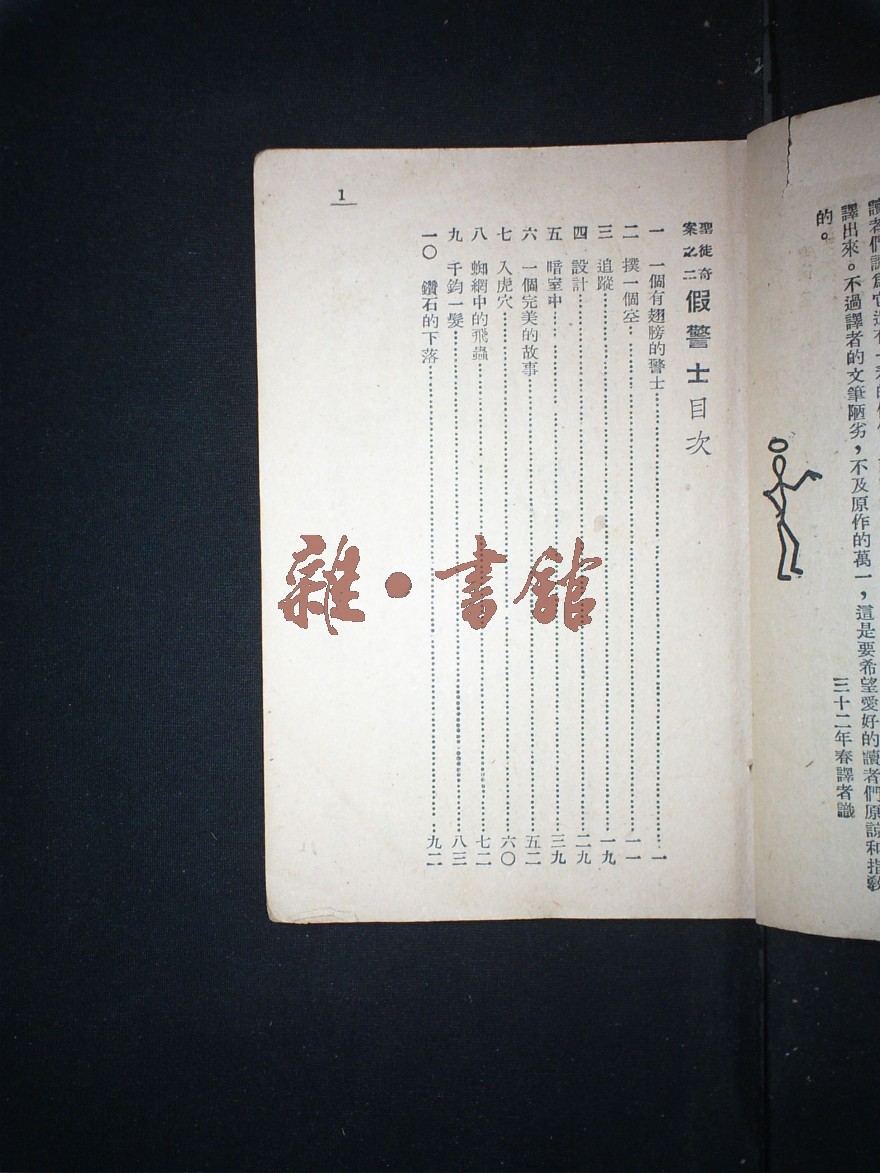 譯出來。不過譯者的文筆陋劣，不及原作的萬一，這是要希望愛好的讀者們原諒和指教
的。
三十二年春譯者識
聖徒奇案之二 假警士目次
一 一個有翅膀的警士 一
二 撲一個空 一一
三 追蹤 一九
四 設計 二九
五 暗室中 三九
六 一個完美的故事 五二
七 入虎穴 六〇
八 蜘網中的飛蟲 七二
九 千鈞一髮 八三
一〇 鑽石的下落 九二
1
雜・書館